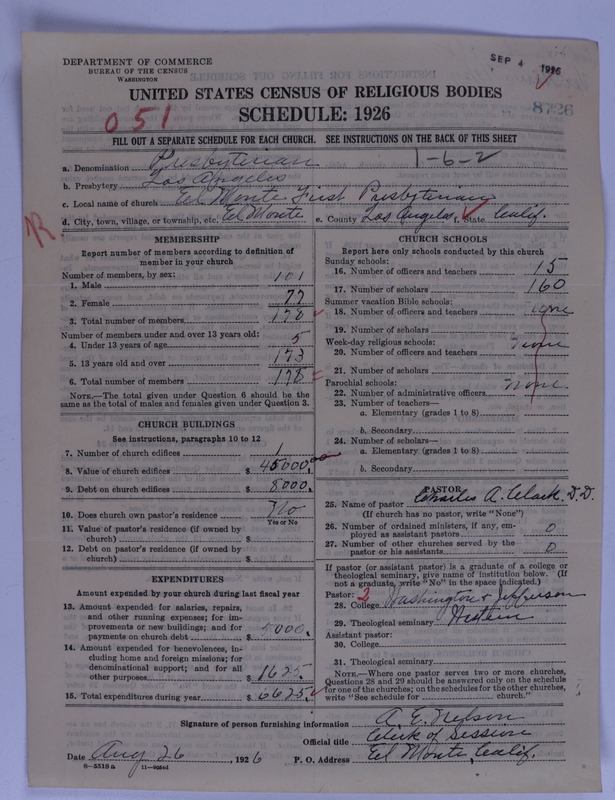 DEPARTMENT OF COMMERCE
BUREAU OF THE CENSUS
WASHINGTON
SEP 4 1926
UNITED STATES CENSUS OF RELIGIOUS BODIES
SCHEDULE: 1926
8726
051
FILL OUT A SEPARATE SCHEDULE FOR EACH CHURCH. SEE INSTRUCTIONS ON THE BACK OF THIS SHEET
a. Denomination Presbyterian 1-6-2
b. Presbytery Los Angeles
c. Local name of church El Monte First Presbyterian
d. City, town, village, or township, etc. El Monte e. County Los Angeles f. State Calif.
MEMBERSHIP
Report number of members according to definition of
member in your church
Number of members, by sex:
1. Male 101
2. Female 77
3. Total number of members 178
Number of members under and over 13 years old:
4. Under 13 years of age 5
5. 13 years old and over 173
6. Total number of members 178
NOTE.—The total given under Question 6 should be the
same as the total of males and females given under Question 3.
CHURCH BUILDINGS
See instructions, paragraphs 10 to 12
7. Number of church edifices 1
8. Value of church edifices $ 45000.00
9. Debt on church edifices $ 8000.
10. Does church own pastor's residence No
Yes or No
11. Value of pastor's residence (if owned by
church) $
12. Debt on pastor's residence (if owned by
church) $
EXPENDITURES
Amount expended by your church during last fiscal year
13. Amount expended for salaries, repairs,
and other running expenses; for im-
provements or new buildings; and for
payments on church debt $ 5000.
14. Amount expended for benevolences, in-
cluding home and foreign missions; for
denominational support; and for all
other purposes $ 1625.
15. Total expenditures during year $ 6625.
CHURCH SCHOOLS
Report here only schools conducted by this church
Sunday schools:
16. Number of officers and teachers 15
17. Number of scholars 160
Summer vacation Bible schools:
18. Number of officers and teachers none
19. Number of scholars
Week-day religious schools:
20. Number of officers and teachers none
21. Number of scholars
Parochial schools:
22. Number of administrative officers none
23. Number of teachers—
a. Elementary (grades 1 to 8)
b. Secondary
24. Number of scholars—
a. Elementary (grades 1 to 8)
b. Secondary
PASTOR
25. Name of pastor Charles A. Clark. D.D.
(If church has no pastor, write "None")
26. Number of ordained ministers, if any, em-
ployed as assistant pastors 0
27. Number of other churches served by the
pastor or his assistants 0
If pastor (or assistant pastor) is a graduate of a college or
theological seminary, give name of institution below. (If
not a graduate, write "No" in the space indicated.)
Pastor: 3
28. College Washington & Jefferson
29. Theological seminary Western
Assistant pastor:
30. College
31. Theological seminary
NOTE.—Where one pastor serves two or more churches,
Questions 28 and 29 should be answered only on the schedule
for one of the churches; on the schedules for the other churches,
write "See schedule for church."
Signature of person furnishing information A. E. Nelson
Official title Clerk of Session
Date Aug 26, 1926 P. O. Address El Monte, Calif.
8—5518a 11—9056d